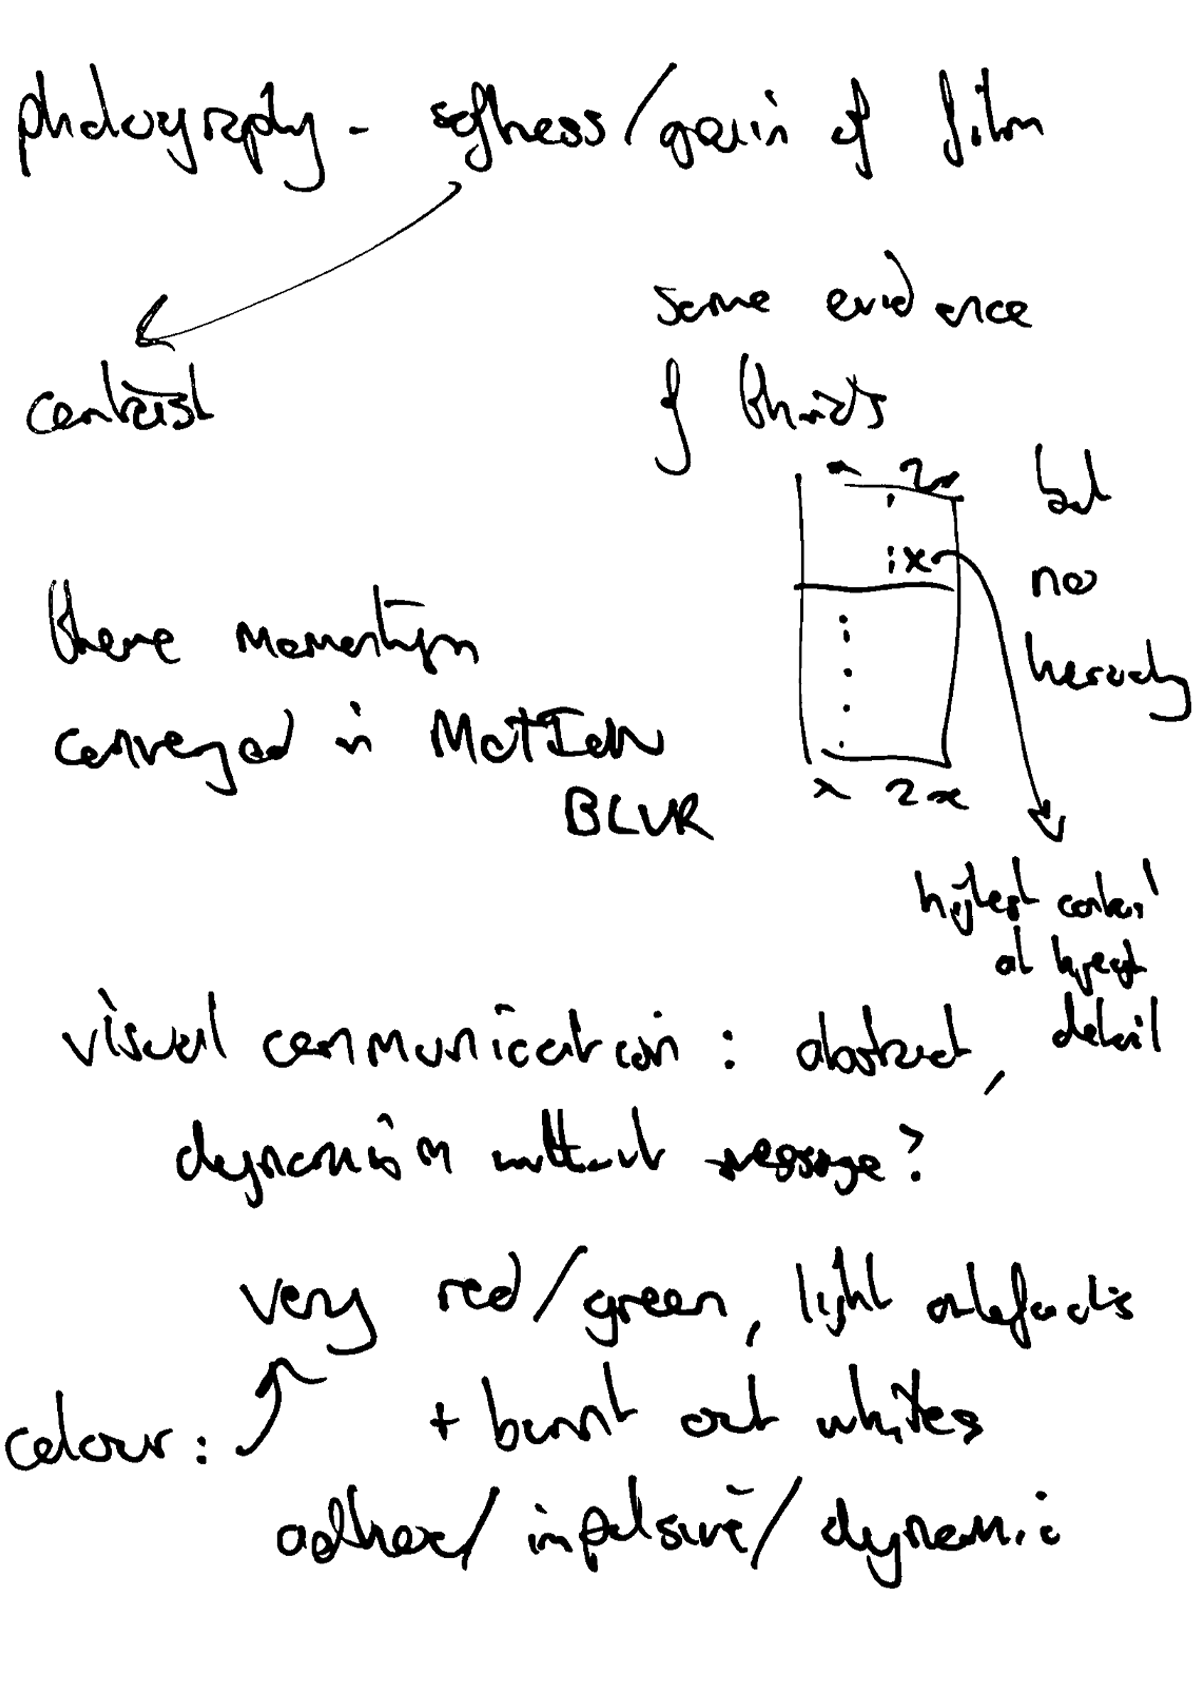 photography - softness/grain of film
some evidence
of thirds
contrast
x 2x
but
:x
no
theme momentum
hierarchy
conveyed in MOTION
BLUR
x 2x
highest contrast
at
detail
visual communication : abstract,
dynamism without message?
very red/green, light artefacts
colour :
+ burnt out whites
adhoc/ impulsive/ dynamic